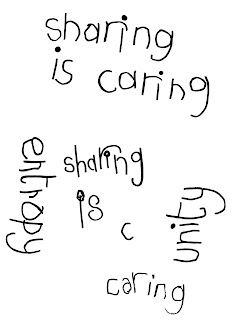 sharing
is caring
entropy
sharing
is
c
unity
caring